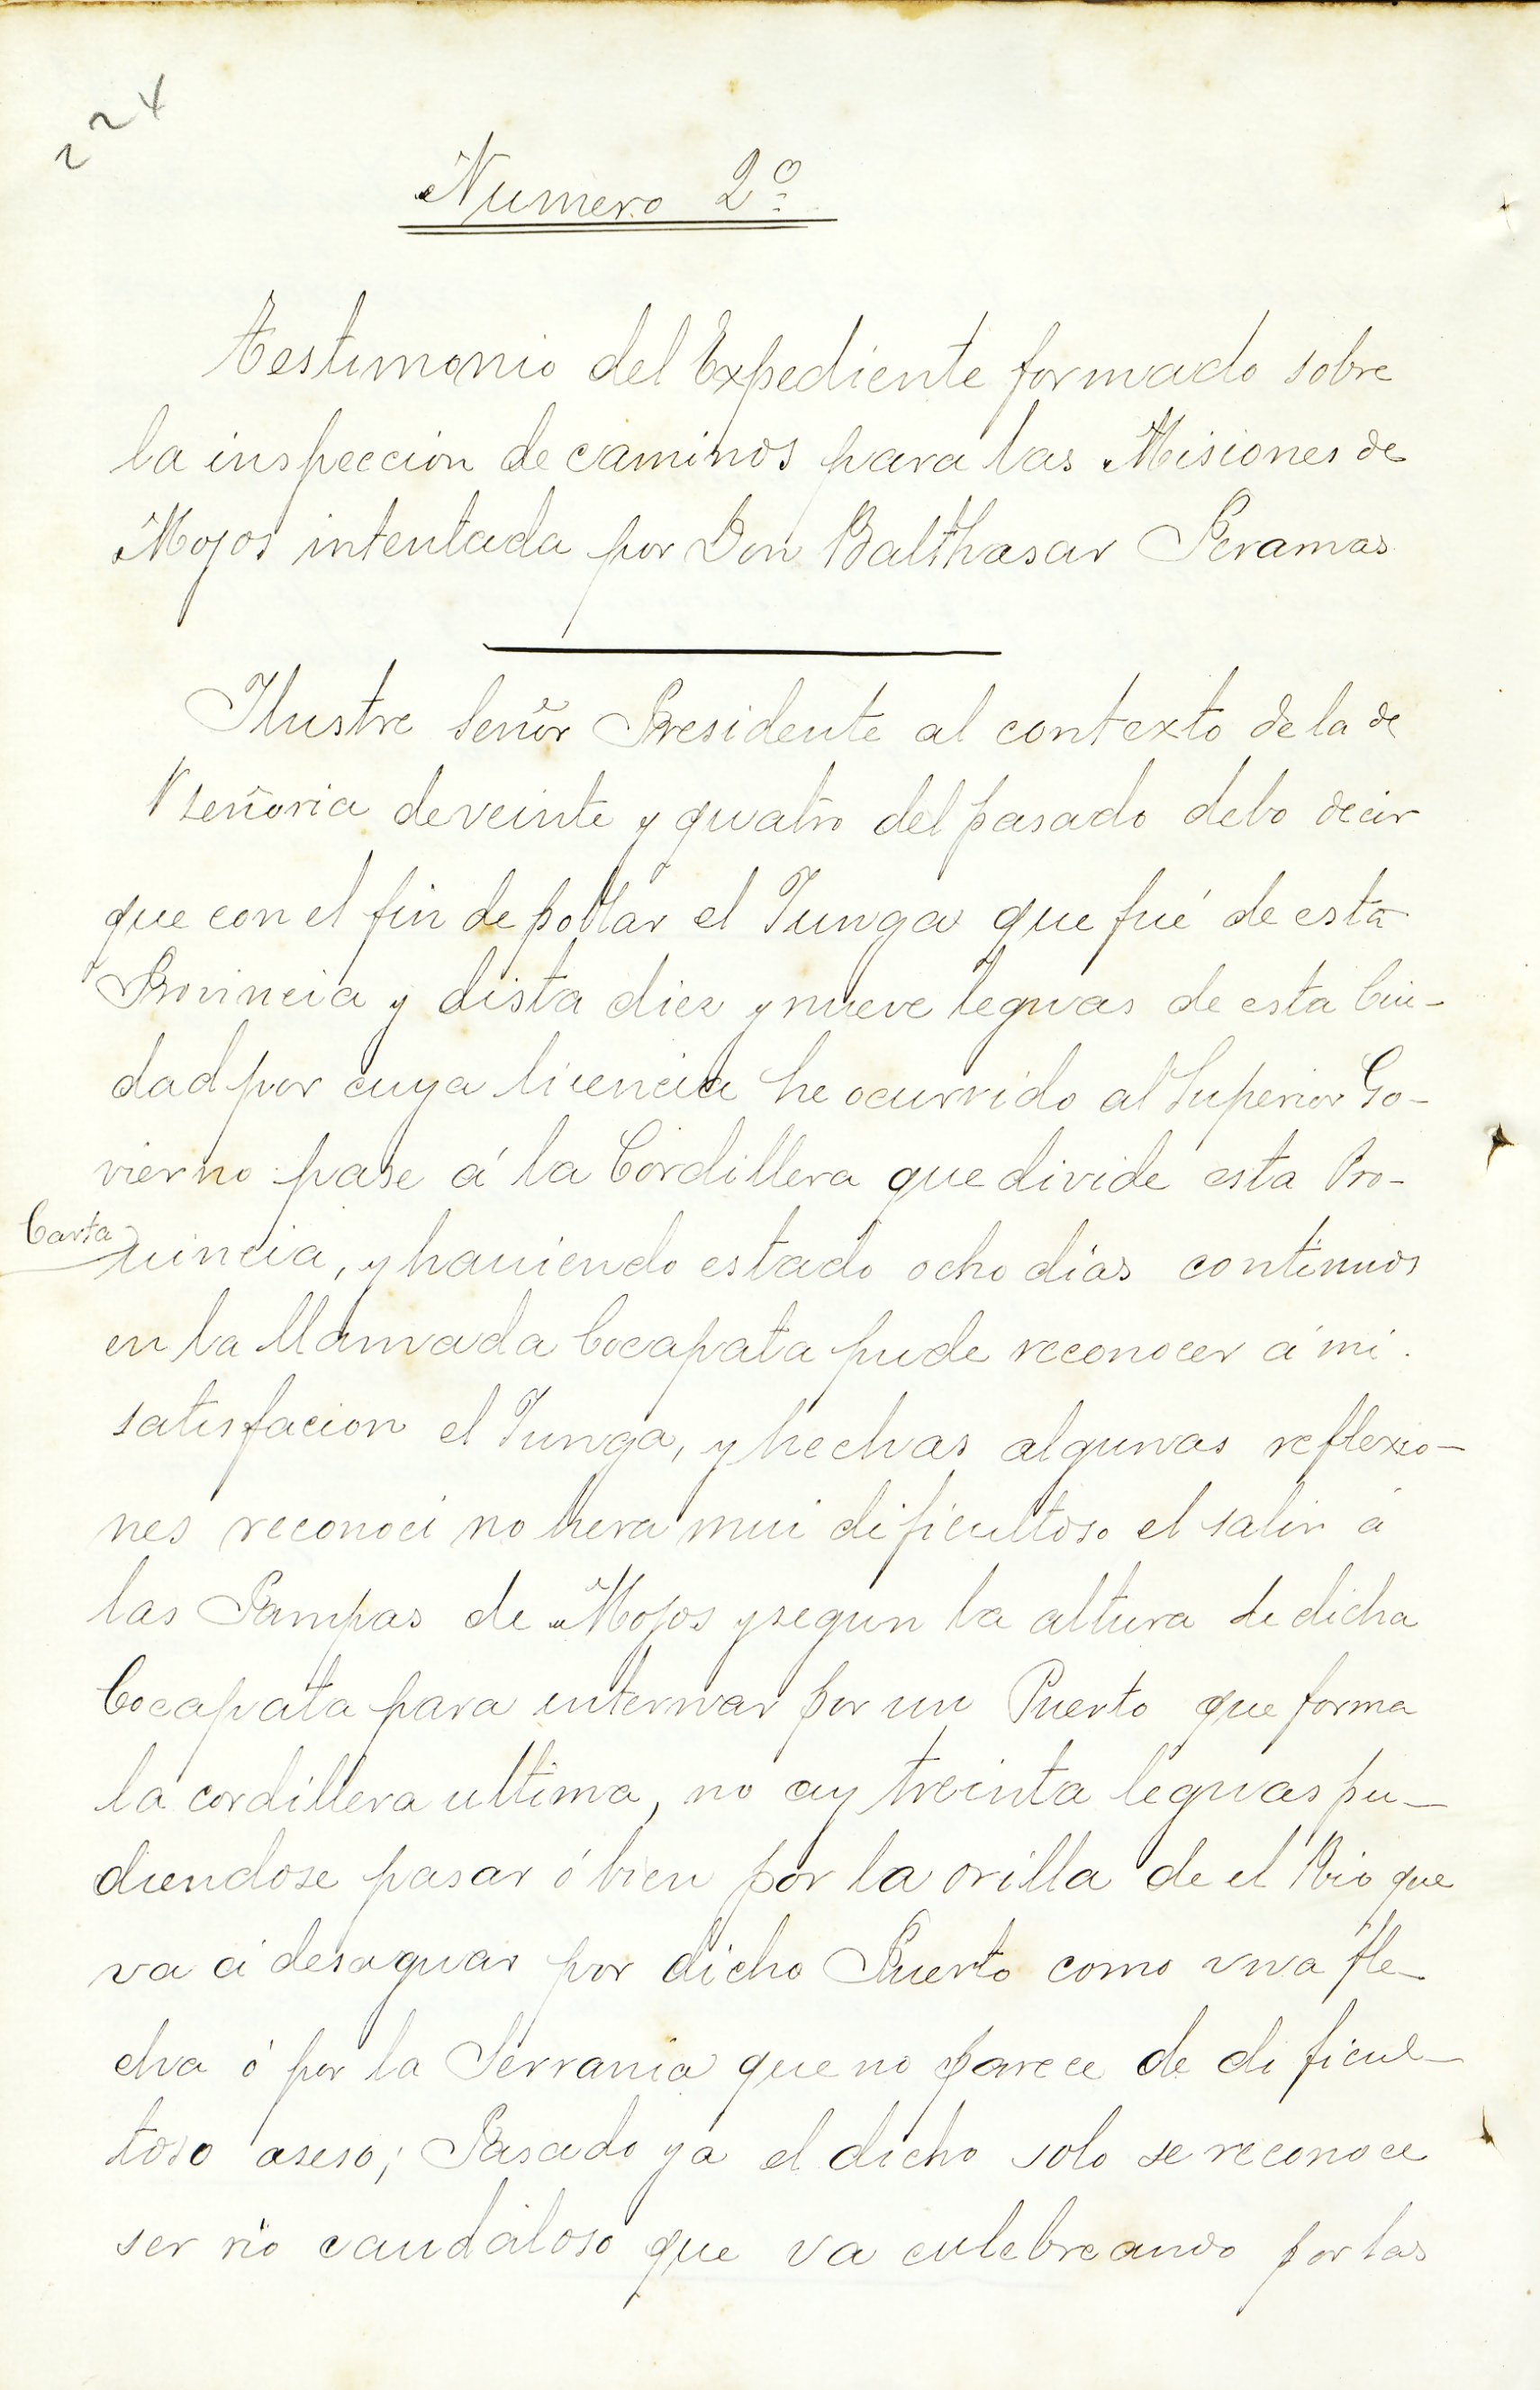 224
Numero 2º
Testimonio del Expediente formado sobre
la inspeccion de caminos para las Misiones de
Mojos intentada por Don Balthasar Peramas
Ilustre Señor Presidente al contexto de la de
V señoria de veinte y quatro del pasado debo decir
que con el fin de poblar el Yunga que fué de esta
Provincia y dista diez y nueve leguas de esta Ciu-
dad por cuya licencia he ocurrido al Superior Go-
vierno pase á la Cordillera que divide esta Pro-
Carta
uincia, y hauiendo estado ocho dias continuos
en la llamada Cocapata pude reconocer á mi
satisfacion el Yunga, y hechas algunas reflexio-
nes reconoci no hera mui dificultoso el salir á
las Pampas de Mojos y segun la altura de dicha
Cocapata para internar por un Puerto que forma
la cordillera ultima, no ay treinta leguas pu-
diendose pasar ó bien por la orilla de el Rio que
va á desaguar por dicho Puerto como una fle-
cha ó por la Serrania que no parece de dificul-
toso aseso; Pasado ya el dicho solo se reconoce
ser rio caudaloso que va culebreando por las